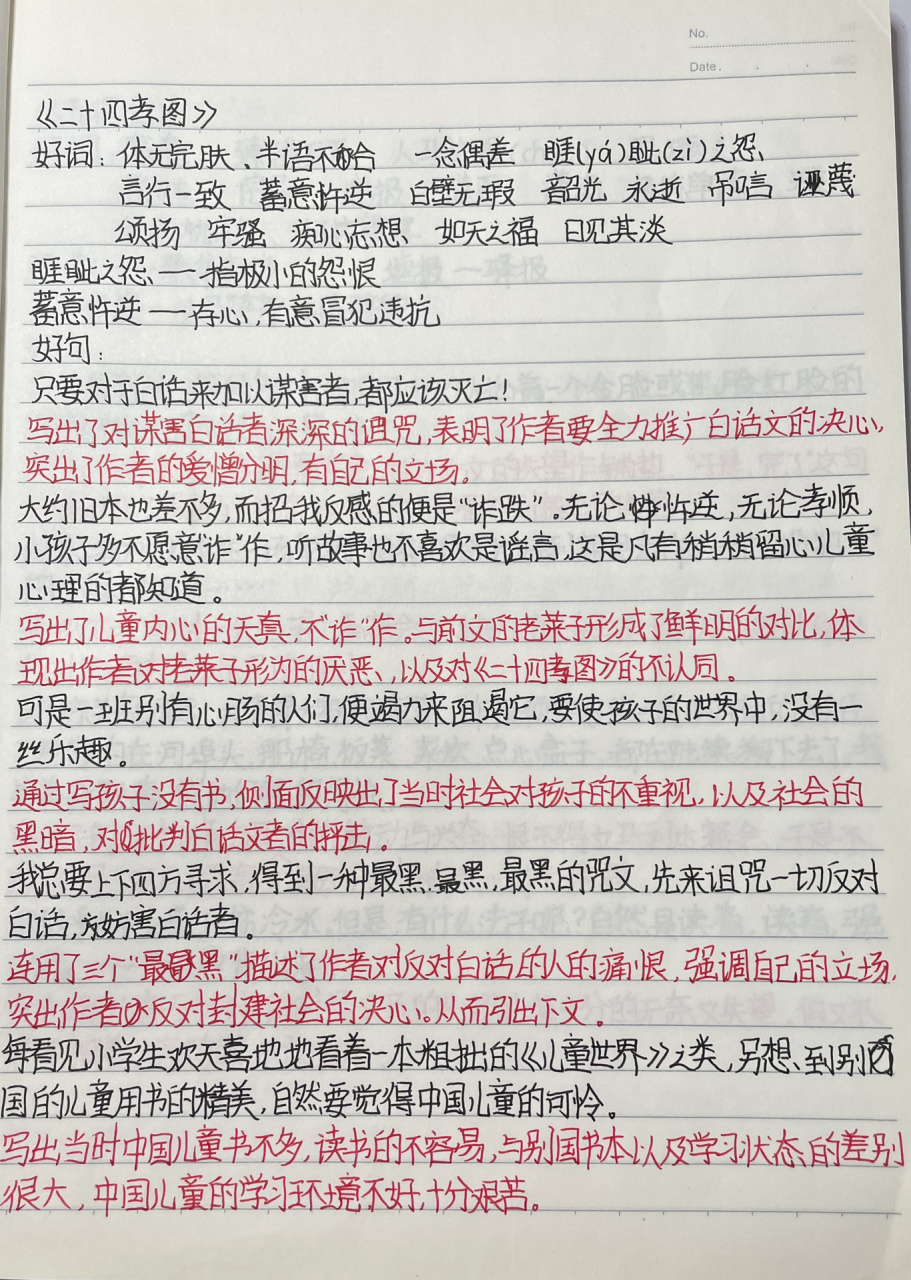 No.
Date.
《二十四孝图》
好词：体无完肤、半语不合 一念偶差 睚(yá)眦(zì)之怨、
言行一致 蓄意忤逆 白壁无瑕 韶光 永逝 吊唁 诬蔑
颂扬 牢骚 痴心忘想、如天之福 日见其淡
睚眦之怨、——指极小的怨恨
蓄意忤逆——存心,有意冒犯违抗
好句：
只要对于白话来加以谋害者,都应该灭亡!
写出了对谋害白话者深深的诅咒,表明了作者要全力推广白话文的决心,
突出了作者的爱憎分明,有自己的立场。
大约旧本也差不多,而招我反感的便是“诈跌”。无论忤逆,无论孝顺,
小孩子多不愿意“诈”作,听故事也不喜欢是谣言,这是凡有稍稍留心儿童
心理的都知道。
写出了儿童内心的天真,不“诈”作。与前文的老莱子形成了鲜明的对比,体
现出作者对老莱子形为的厌恶、以及对《二十四孝图》的不认同。
可是一班别有心肠的人们,便竭力来阻遏它,要使孩子的世界中,没有一
丝乐趣。
通过写孩子没有书,侧面反映出了当时社会对孩子的不重视,以及社会的
黑暗,对批判白话文者的抨击。
我总要上下四方寻求,得到一种最黑,最黑,最黑的咒文,先来诅咒一切反对
白话,妨害白话者。
连用了三个“最黑”描述了作者对反对白话的人的痛恨,强调自己的立场,
突出作者反对封建社会的决心。从而引出下文。
每看见小学生欢天喜地地看着一本粗拙的《儿童世界》之类,另想、到别
国的儿童用书的精美,自然要觉得中国儿童的可怜。
写出当时中国儿童书不多,读书的不容易,与别国书本以及学习状态的差别
很大,中国儿童的学习环境不好,十分艰苦。